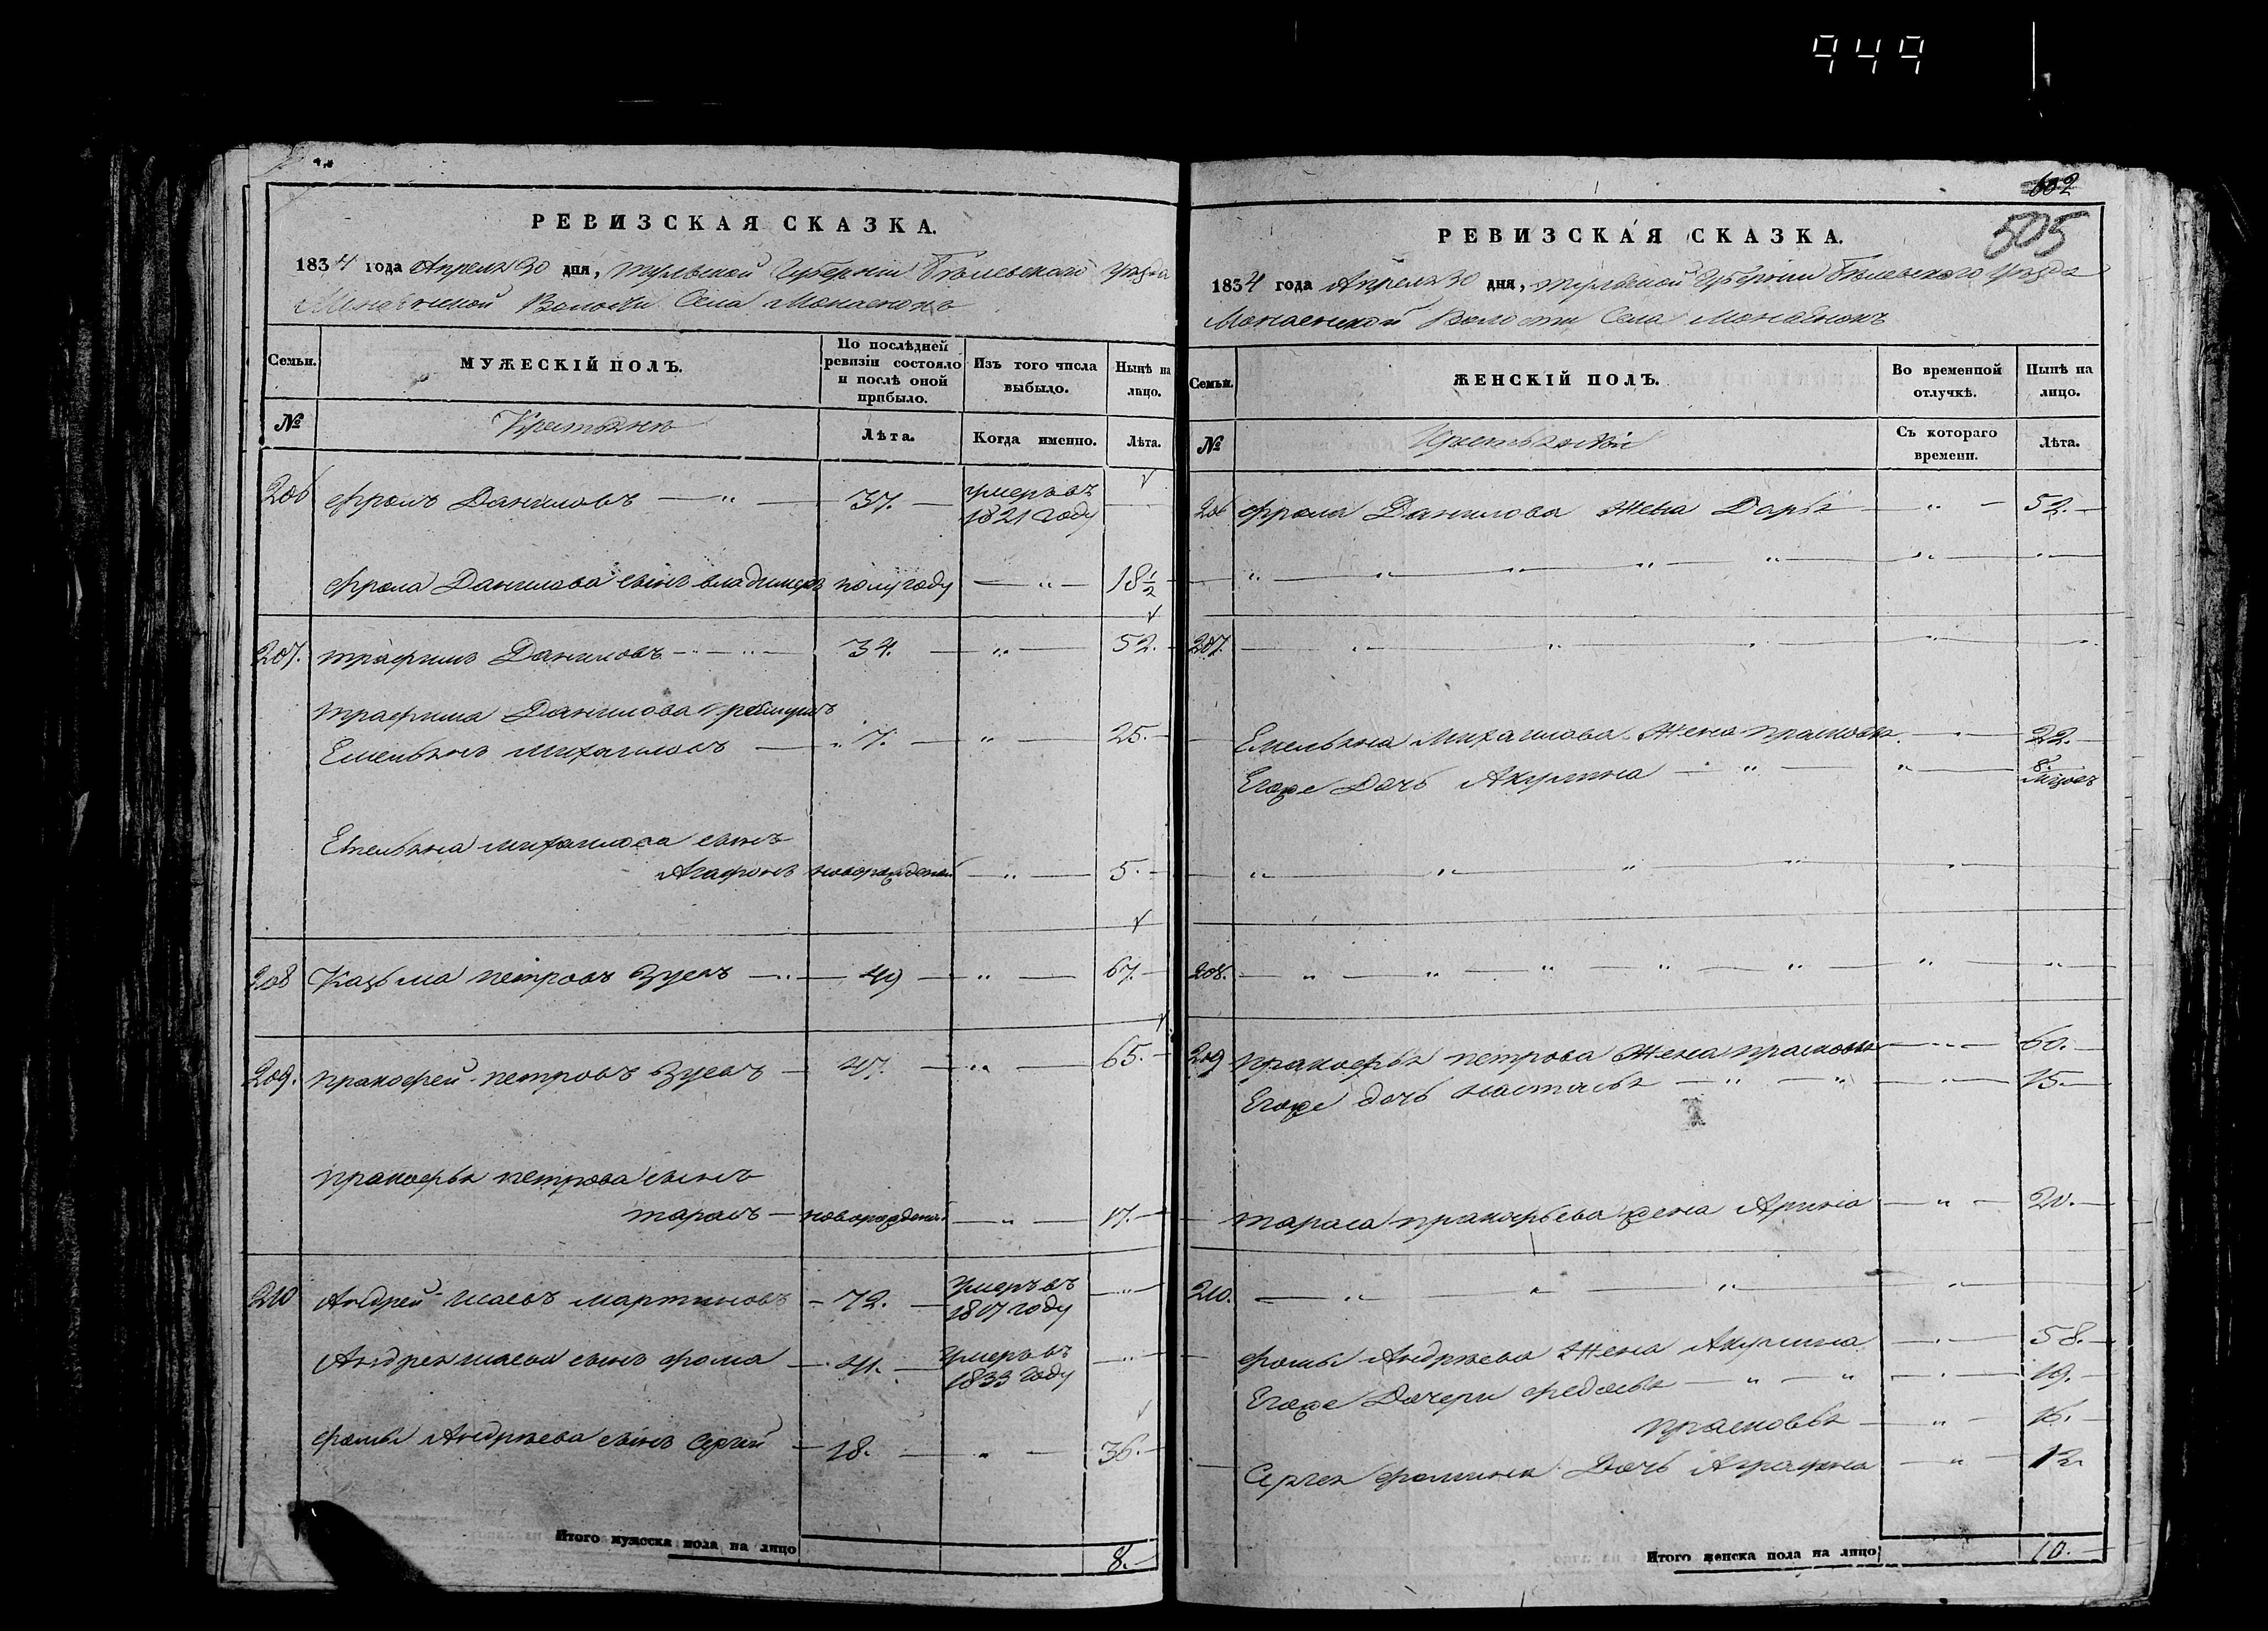 949
РЕВИЗСКАЯ СКАЗКА.
1834 года Апреля 30 дня, Тульской Губернии Бѣлевскаго Уезда
Монаенской Волости Села Монаенокъ
Семьи.
МУЖЕСКІЙ ПОЛЪ.
По послѣдней ревизіи состояло и послѣ оной прибыло.
Изъ того числа выбыло.
Нынѣ на лицо.
№
Крестьяне
Лѣта.
Когда именно.
Лѣта.
206 Фролъ Даниловъ — " — 37. — умеръ въ 1821 году
Фрола Данилова сынъ владимеръ полугоду — " — 18 1/2
207. Трафимъ Даниловъ — " — 34. — " — 52.
Трафима Данилова
Емельянъ Михаиловъ — " 7. — " — 25.
Емельяна Михаилова сынъ
Агафонъ новорожденой — " — 5.
208 Казьма Петровъ Зуевъ — " — 49 — " — 67.
209. Пракофей Петровъ Зуевъ — 47. — " — 65.
Пракофья Петрова сынъ
Тарасъ — новорожденъ. — " — 17.
210 Андрей Исаевъ Мартиновъ — 72. — Умеръ въ 1817 году — " —
Андрея Исаева сынъ Фома — 41. — Умеръ въ 1833 году — " —
Фомы Андреева сынъ Сергей — 18. — " — 36.
Итого мужеска пола на лицо 8.
602
505
РЕВИЗСКАЯ СКАЗКА.
1834 года Апреля 30 дня, Тульской Губернии Бѣлевскаго Уезда
Монаенской Волости Села Монаенокъ
Семьи.
ЖЕНСКІЙ ПОЛЪ.
Во временной отлучкѣ.
Нынѣ на лицо.
№
Съ котораго времени.
Лѣта.
206 Фрола Данилова Жена Дарья — " — 52.
207.
Емельяна Михаилова Жена Прасковья — " — 22.
Егоже Дочь Акулина — " — " — 8. месецовъ
208.
209 Пракофья Петрова Жена Прасковья — " — 60.
Егоже дочь Настасья — " — " — 15.
Тараса Пракофьева жена Арина — " — 20.
210.
Фомы Андреева Жена Акулина — " — 58.
Егоже Дочери Федосья — " — " — 19.
Прасковья — " — 16.
Сергея Фомина Дочь Аграфена — " — 12
Итого женска пола на лицо 10.